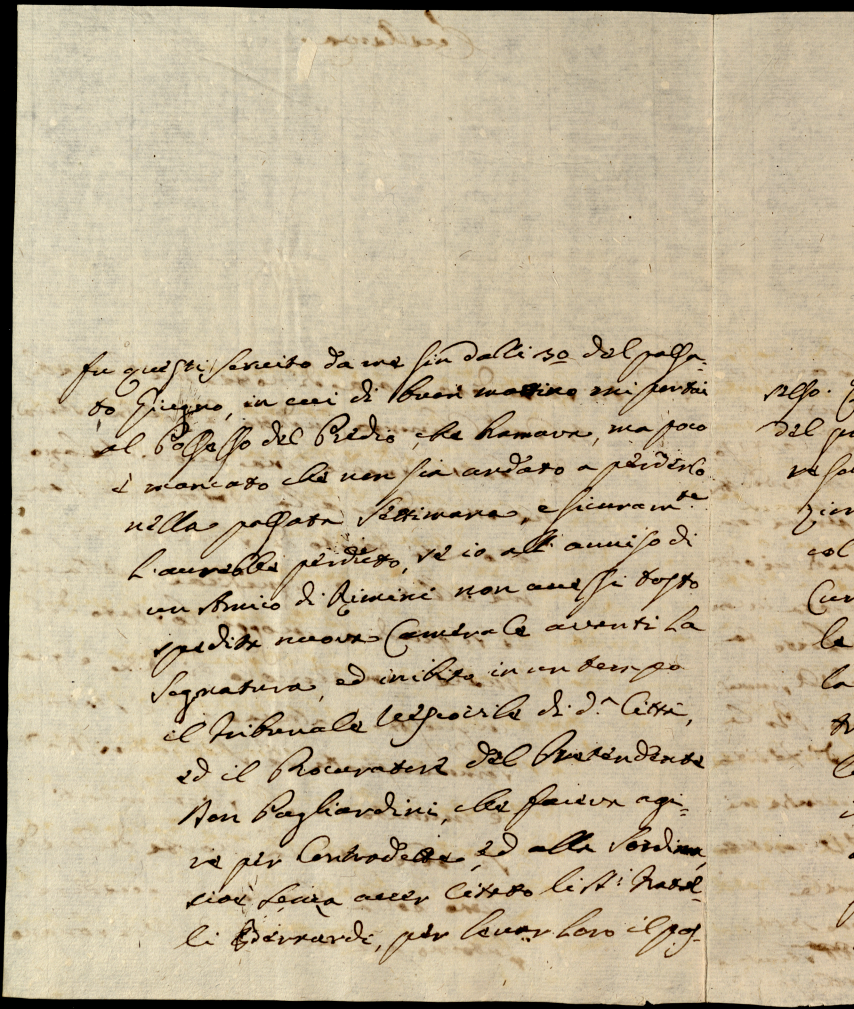 Fu questi servito da me sin dalli 30 del passa-
to Giugno, in cui di buon mattino mi portai
al Possesso del Predio, che bramava, ma poco
è mancato che non sia andato a perderlo
nella passata Settimana, e sicuram.te
l'averebbe perduto, se io all'avviso di
un Amico di Rimini non avessi tosto
spedita nuova Camerale avanti la
Segnatura, ed inibito in un tempo
il Tribunale Vescovile di d.a Città,
ed il Procuratore del Pretendente
Don Pagliardini, che faceva agi-
re per Contradette, ed alla Sordina,
cioè senza aver citato li st.i Fratel-
li Berrardi, per levar loro il pos-
sesso.
del
col
la